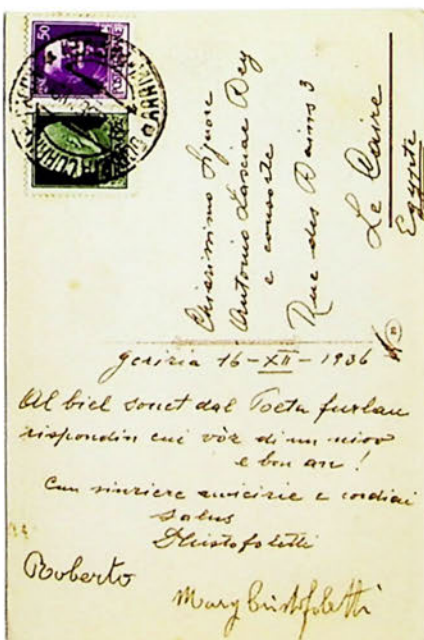 50
Chiarissimo Signore
Antonio Lasciac Bey
e consorte
Rue des Bains 3
Le Caire
Egypte
Gorizia 16-XII-1936
Al biel sonet dal Poeta furlan
rispondin cui vôz di un niovo
e bon an!
Cun sinziere amicizie e cordiai
salus
Cristofoletti
Roberto
Mary Cristofoletti